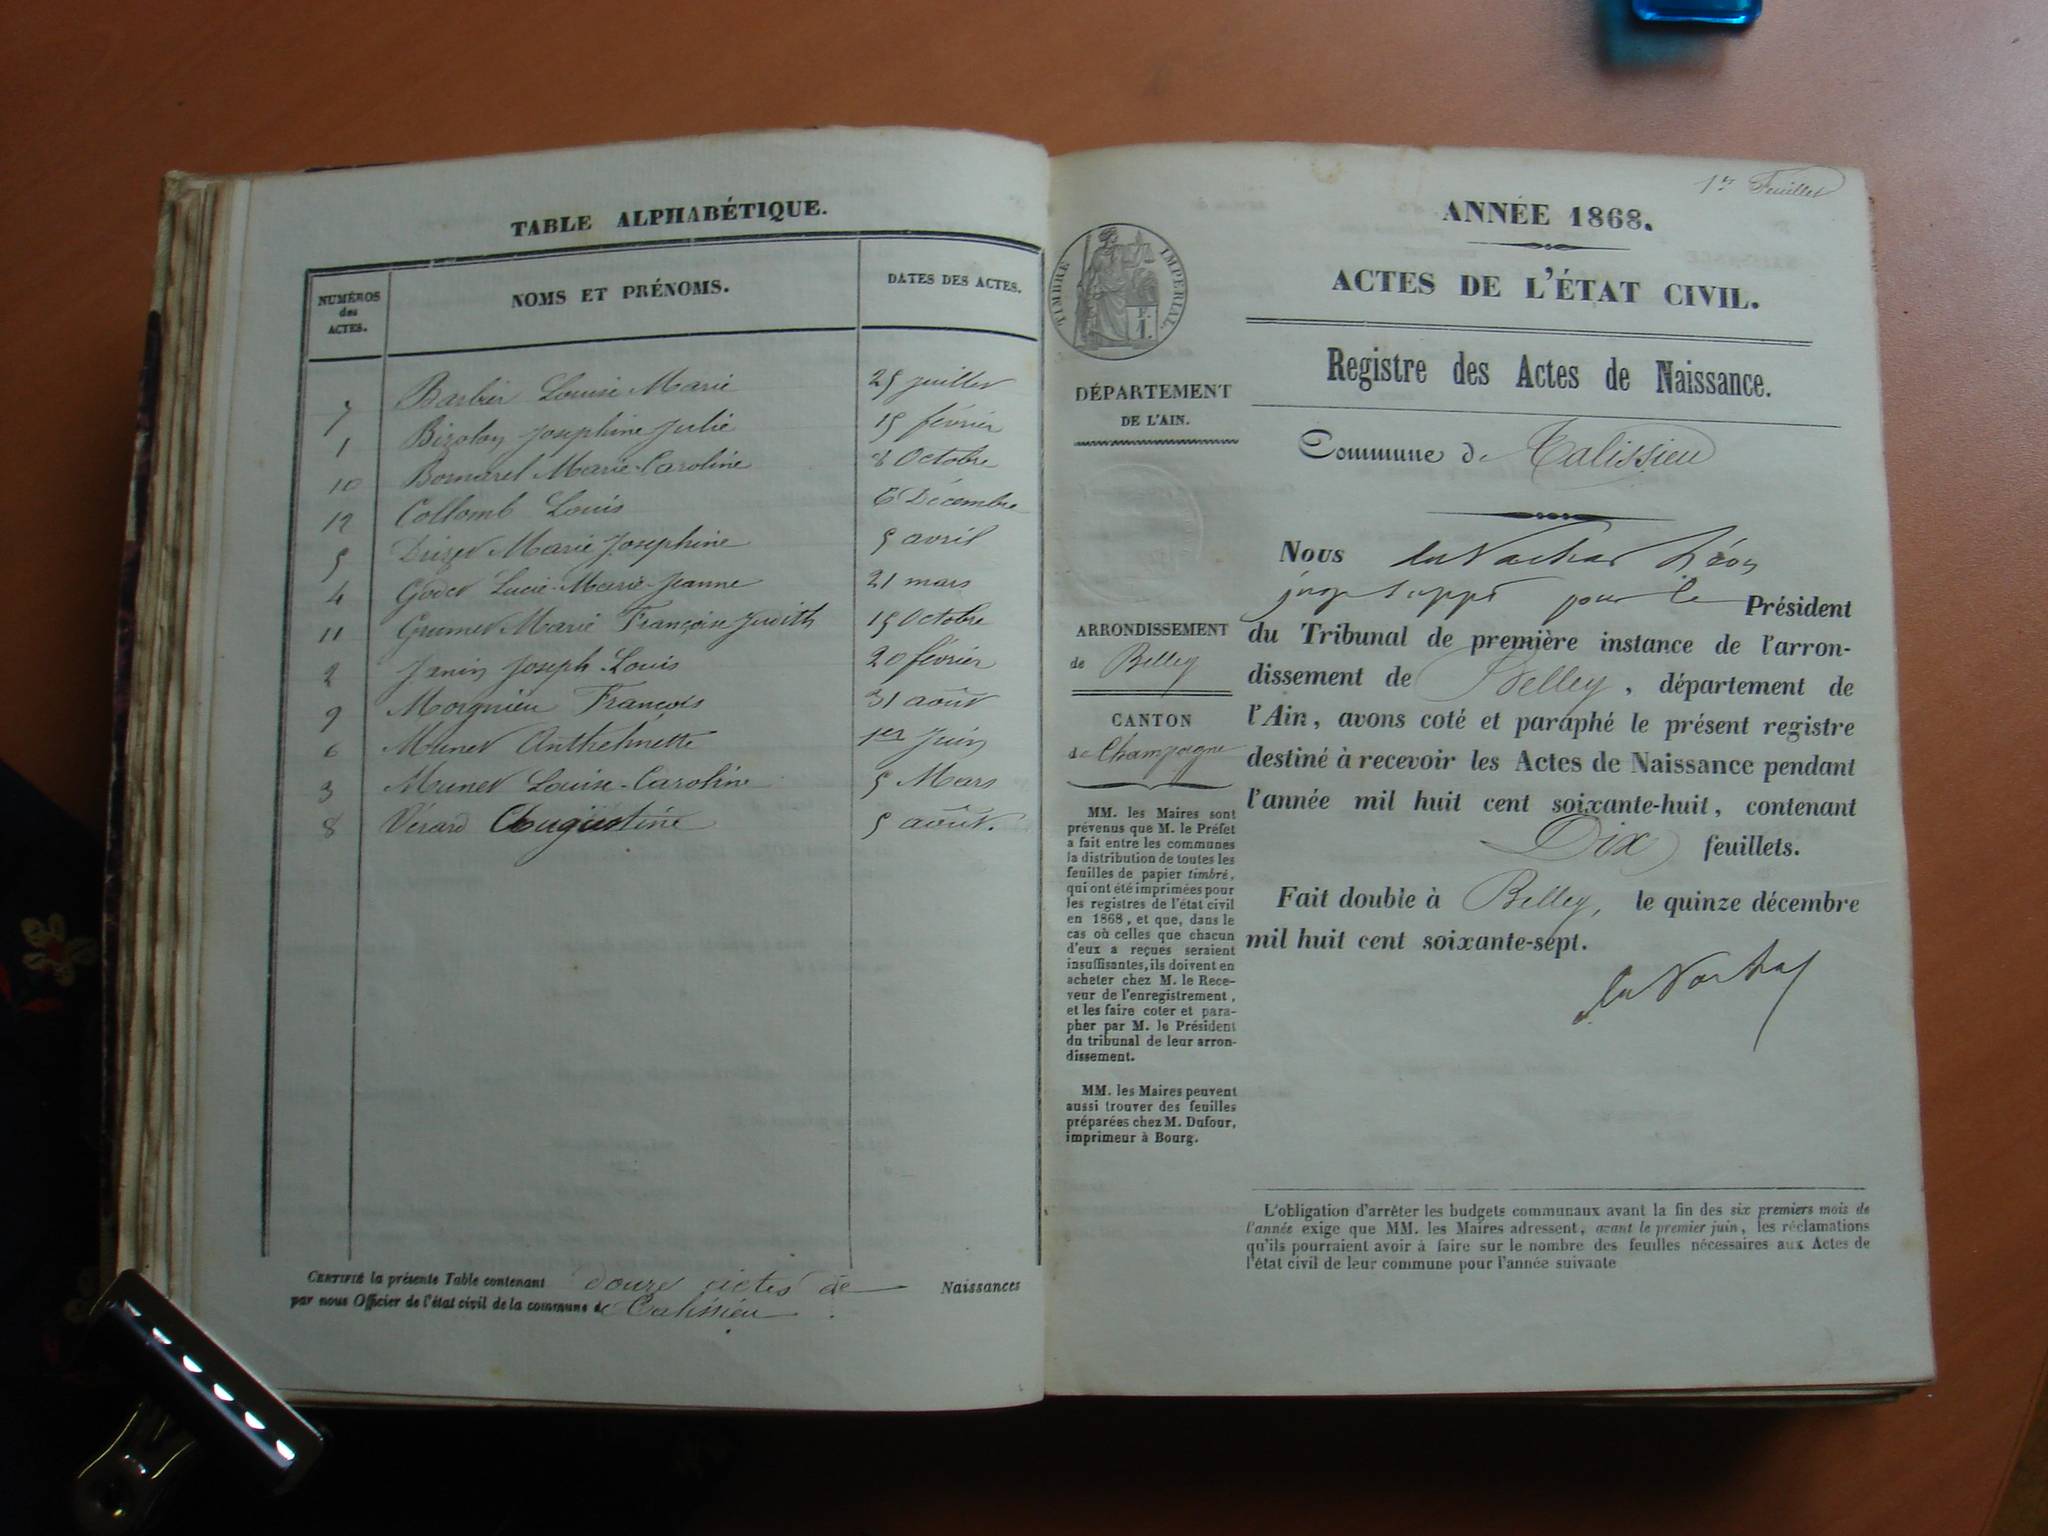 TABLE ALPHABÉTIQUE.
NUMÉROS des ACTES.
NOMS ET PRÉNOMS.
DATES DES ACTES.
7 Barbier Louise Marie 25 juillet
1 Bizolon Josephine Julie 15 février
10 Bornarel Marie-Caroline 8 Octobre
12 Collomb Louis 6 Décembre
5 Marie Josephine 5 avril
4 Godet Lucie-Marie-Jeanne 21 mars
11 Grumet Marie Françoise Judith 15 Octobre
2 Janin Joseph-Louis 20 février
9 Morgnieu François 31 août
6 Munet Anthelmette 1er Juin
3 Munet Louise-Caroline 5 Mars
8 Vérard Augustine 5 août.
CERTIFIÉ la présente Table contenant douze actes de Naissances
par nous Officier de l'état civil de la commune de Talissieu
1er Feuillet
ANNÉE 1868.
ACTES DE L'ÉTAT CIVIL.
TIMBRE IMPÉRIAL.
F. 1.
Registre des Actes de Naissance.
DÉPARTEMENT
DE L'AIN.
Commune de Talissieu
ARRONDISSEMENT
de Belley
CANTON
de Champagne
MM. les Maires sont
prévenus que M. le Préfet
a fait entre les communes
la distribution de toutes les
feuilles de papier timbré,
qui ont été imprimées pour
les registres de l'état civil
en 1868, et que, dans le
cas où celles que chacun
d'eux a reçues seraient
insuffisantes, ils doivent en
acheter chez M. le Rece-
veur de l'enregistrement,
et les faire coter et para-
pher par M. le Président
du tribunal de leur arron-
dissement.
MM. les Maires peuvent
aussi trouver des feuilles
préparées chez M. Dufour,
imprimeur à Bourg.
Nous Léon
juge suppt pour le Président
du Tribunal de première instance de l'arron-
dissement de Belley, département de
l'Ain, avons coté et paraphé le présent registre
destiné à recevoir les Actes de Naissance pendant
l'année mil huit cent soixante-huit, contenant
Dix feuillets.
Fait double à Belley, le quinze décembre
mil huit cent soixante-sept.
L'obligation d'arrêter les budgets communaux avant la fin des six premiers mois de
l'année exige que MM. les Maires adressent, avant le premier juin, les réclamations
qu'ils pourraient avoir à faire sur le nombre des feuilles nécessaires aux Actes de
l'état civil de leur commune pour l'année suivante